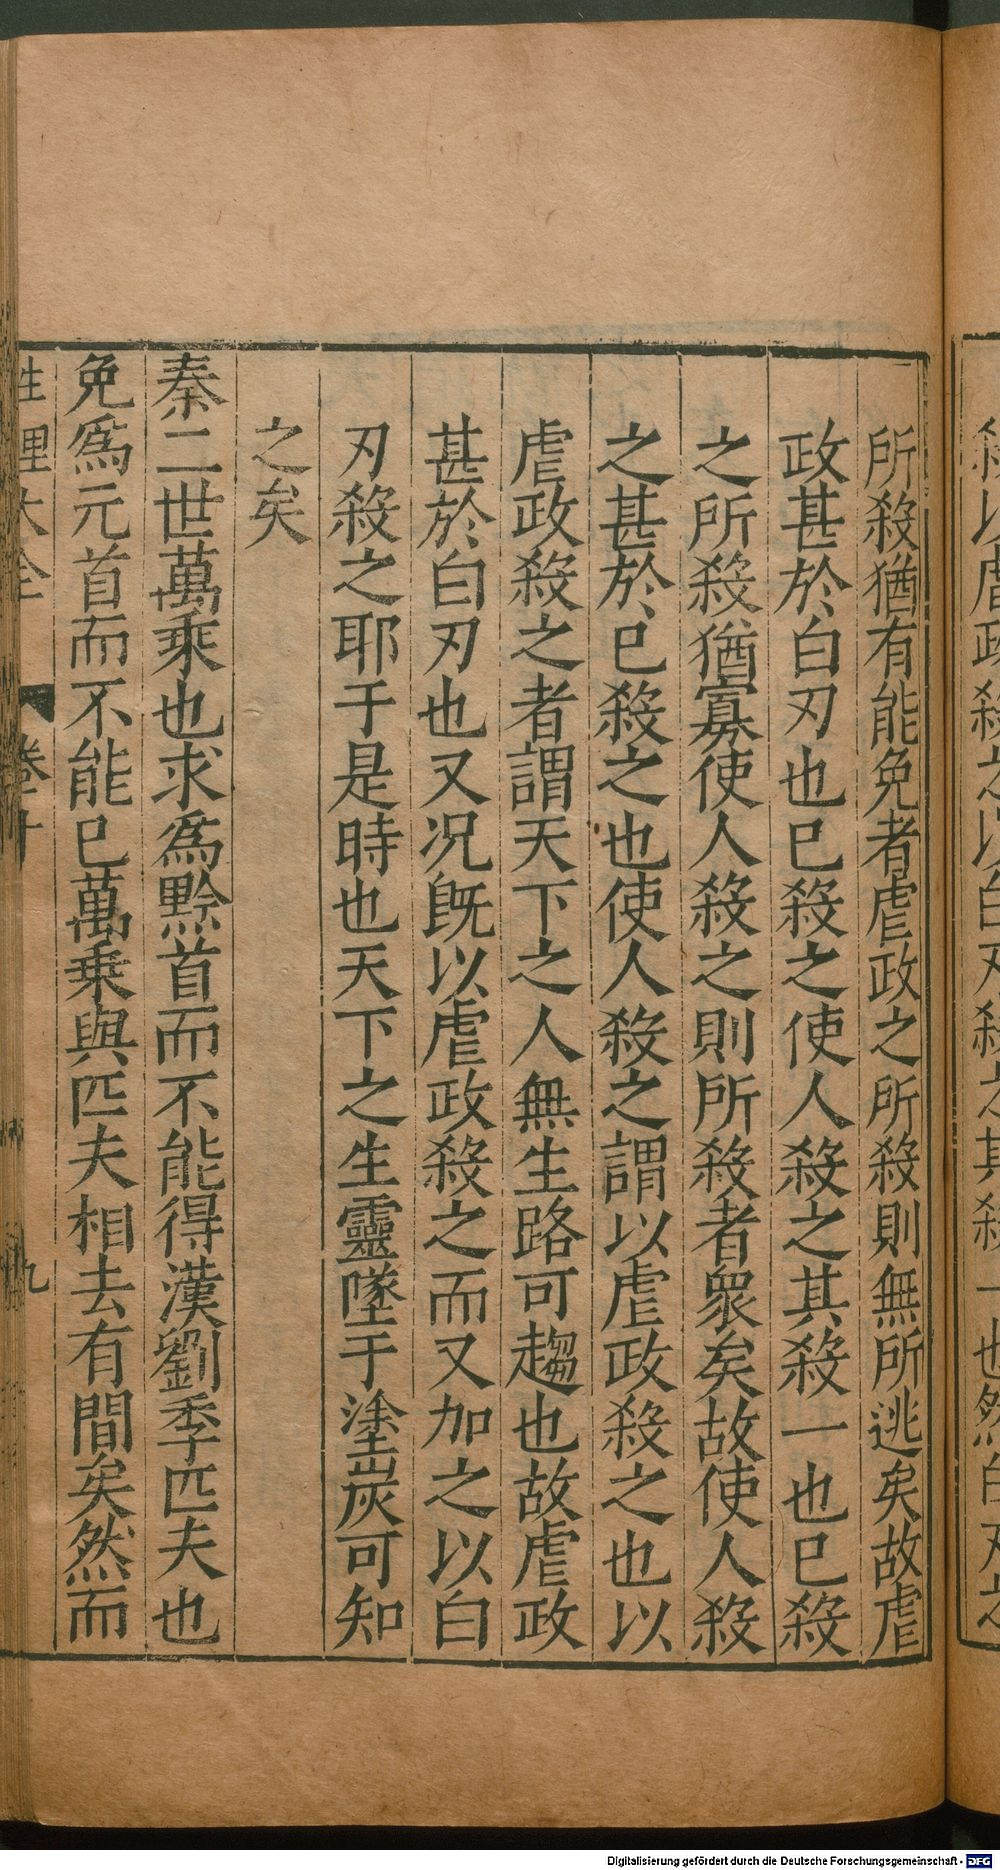 所殺猶有能免者虐政之所殺則無所逃矣故虐
政甚於白刃也已殺之使人殺之其殺一也已殺
之所殺猶寡使人殺之則所殺者衆矣故使人殺
之甚於已殺之也使人殺之謂以虐政殺之也以
虐政殺之者謂天下之人無生路可趨也故虐政
甚於白刃也又况旣以虐政殺之而又加之以白
刃殺之耶于是時也天下之生靈墜于塗炭可知
之矣
秦二世萬乘也求爲黔首而不能得漢劉季匹夫也
免爲元首而不能已萬乗與匹夫相去有間矣然而
性理大全 卷十 九
Digitalisierung gefördert durch die Deutsche Forschungsgemeinschaft - DFG